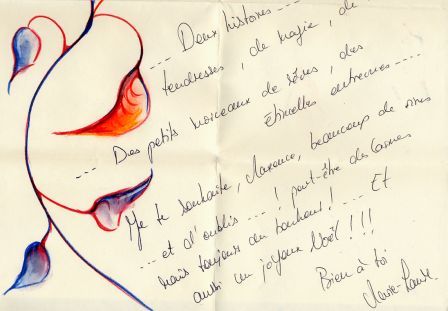 --- Deux histoires ---
tendresses, de magie, de
--- Des petits morceaux de rêves, des
étincelles entrevues ----
Je te souhaite, Maxence, beaucoup de rires
--- et d'oublis ---! peut-être des larmes
mais toujours du bonheur! --- Et
aussi un joyeux Noël!!!
Bien à toi
Marie-Laure